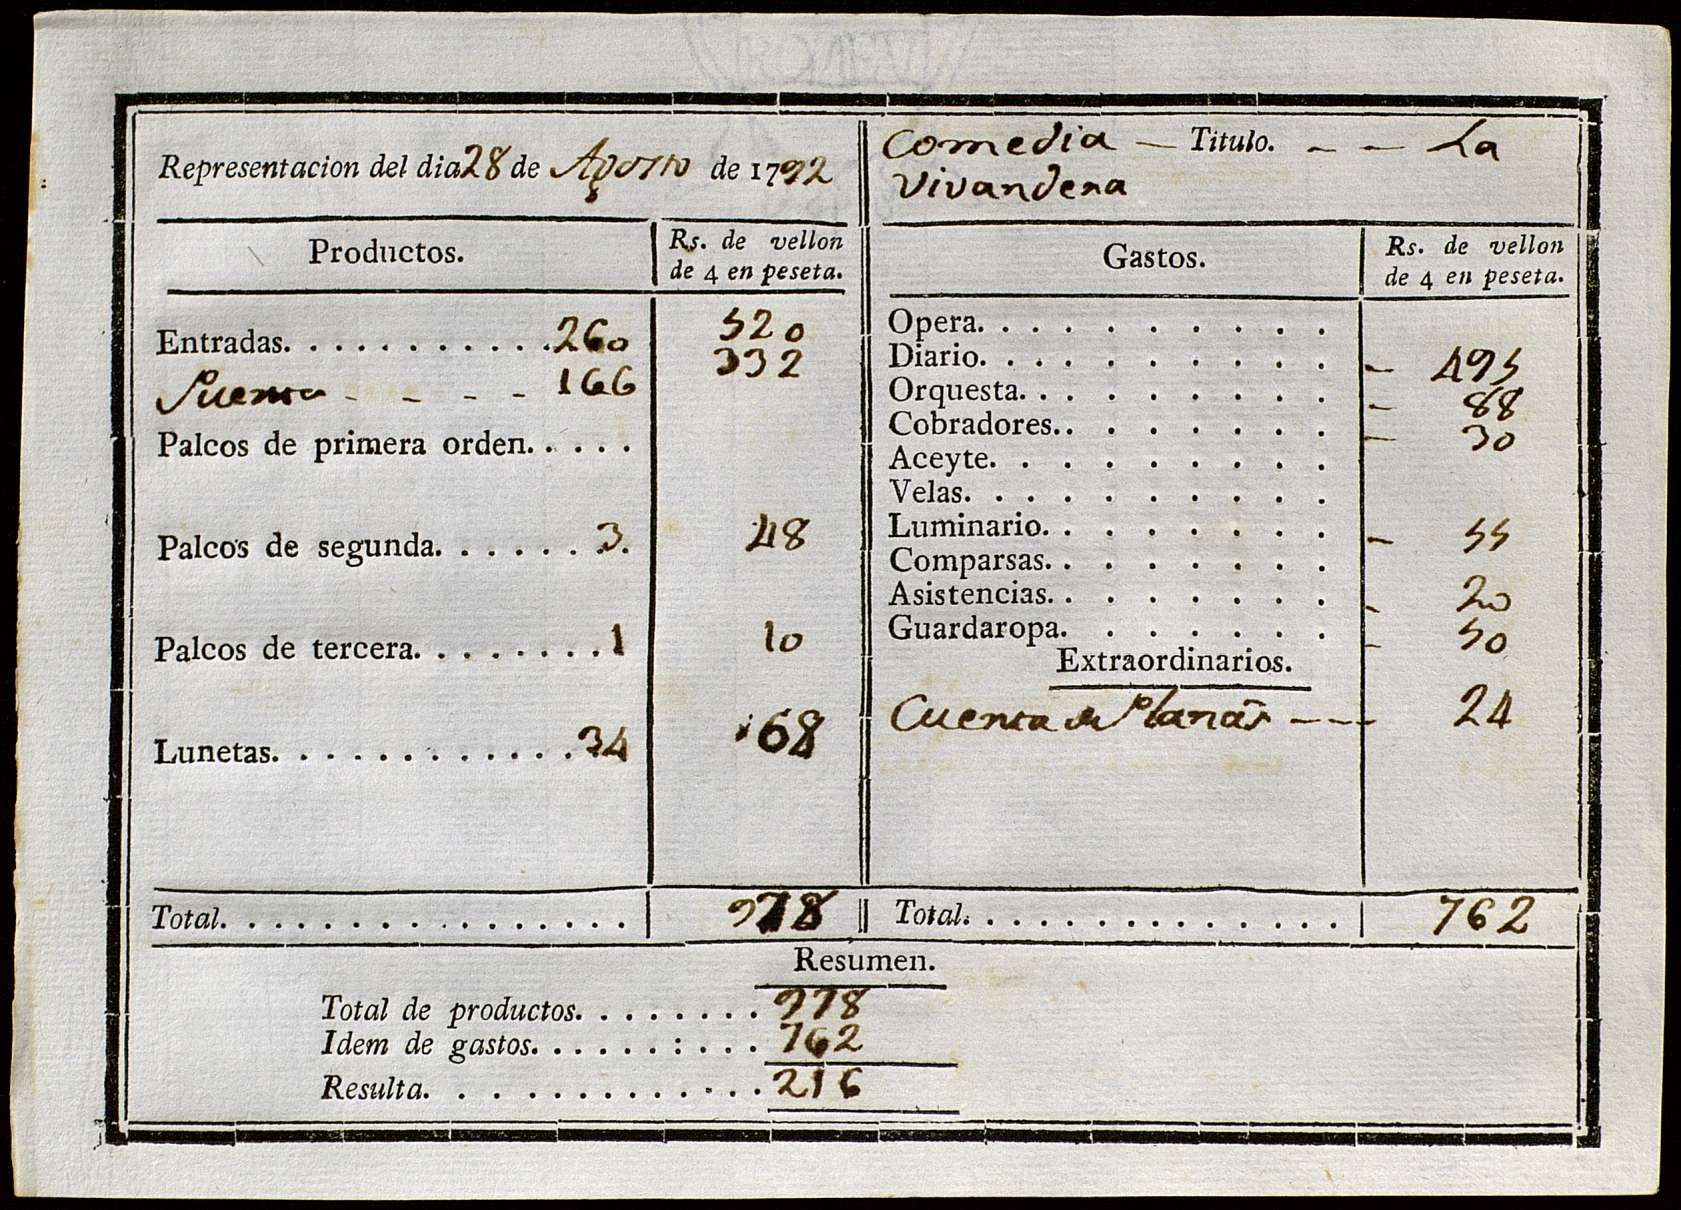 Representacion del dia 28 de Agosto de 1792
Comedia — Titulo. — — La
Vivandera
Productos.
Rs. de vellon
de 4 en peseta.
Entradas. . . . . . . . . . . 260 520
Puerta - - - - 166 332
Palcos de primera orden. . . . .
Palcos de segunda. . . . . . . 3. 48
Palcos de tercera. . . . . . . . 1 10
Lunetas. . . . . . . . . . . . 34 68
Total. . . . . . . . . . . . . . . . 978
Gastos.
Rs. de vellon
de 4 en peseta.
Opera. . . . . . . . . .
Diario. . . . . . . . . . — 495
Orquesta. . . . . . . . . — 88
Cobradores. . . . . . . . — 30
Aceyte. . . . . . . . . .
Velas. . . . . . . . . .
Luminario. . . . . . . . — 55
Comparsas. . . . . . . .
Asistencias. . . . . . . . - 20
Guardaropa. . . . . . . - 50
Extraordinarios.
Cuenta de Planas — — — 24
Total. . . . . . . . . . . . . . 762
Resumen.
Total de productos. . . . . . . . 978
Idem de gastos. . . . . . : . . . 762
Resulta. . . . . . . . . . . . . . 216